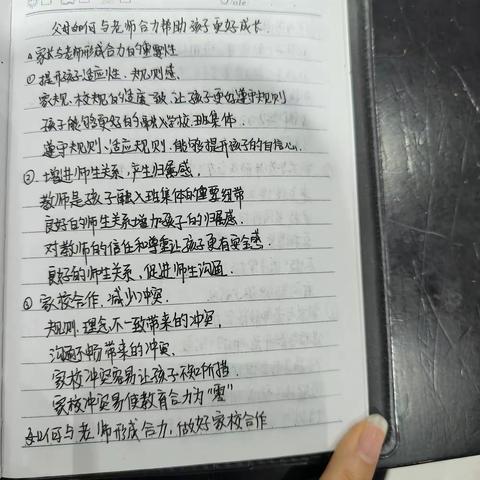 父母如何与老师合力帮助孩子更好成长.
△家长与老师形成合力的重要性
① 提升孩子适应性、规则感.
家规、校规的适度一致,让孩子更好遵守规则
孩子能够更好的融入学校、班集体.
遵守规则、适应规则,能够提升孩子的自信心.
②.增进师生关系,产生归属感.
教师是孩子融入班集体的重要纽带
良好的师生关系增加孩子的归属感.
对教师的信任和尊重让孩子更有安全感.
良好的师生关系,促进师生沟通.
③ 家校合作,减少冲突.
规则、理念不一致带来的冲突,
沟通不畅带来的冲突.
家校冲突容易让孩子不知所措
家校冲突易使教育合力为“零”
如何与老师形成合力,做好家校合作